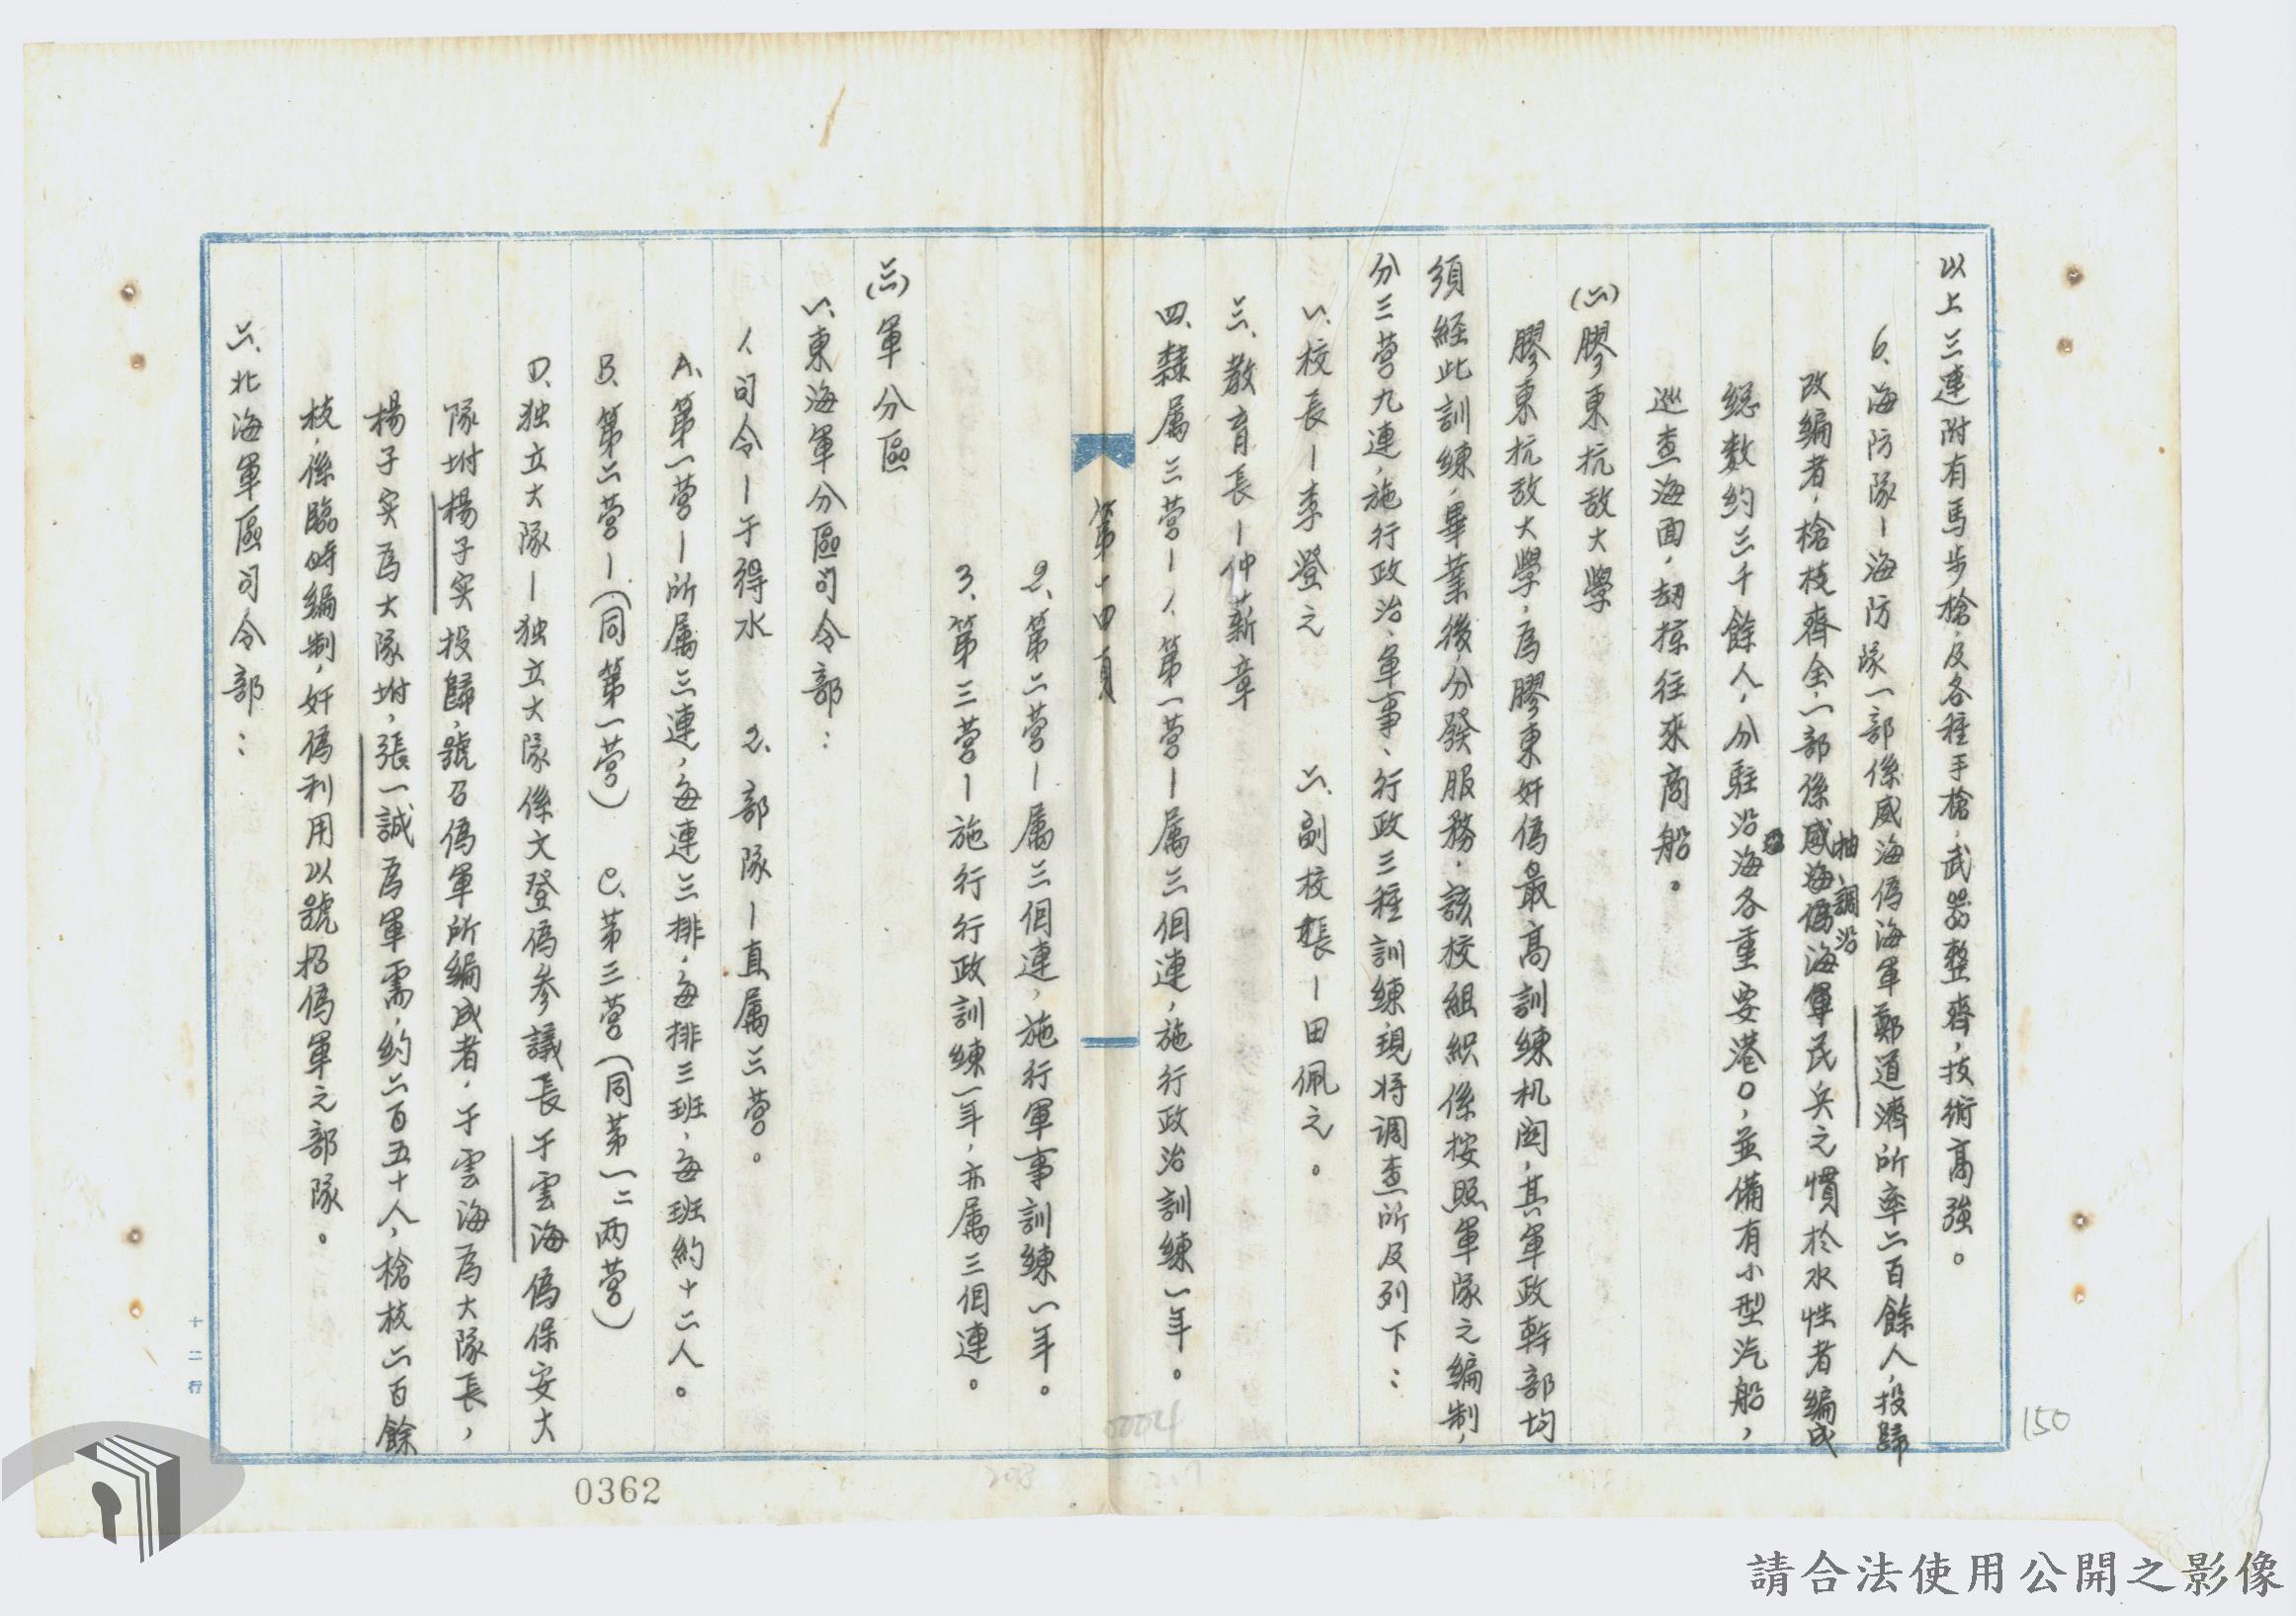 以上三連附有馬步槍,及各種手槍,武器整齊,技術高強。
6、海防隊—海防隊一部係威海偽海軍鄭道濟所率二百餘人,投歸
改編者,槍枝齊全,一部係威海偽海軍民兵之慣於水性者編成
抽調沿
總數約三千餘人,分駐沿海各重要港口,並備有小型汽船,
巡查海面,刼掠往來商船。
(二)膠東抗敌大學
膠東抗敌大學,為膠東奸偽最高訓練机関,其軍政幹部均
須経此訓練,畢業後,分發服務.該校組織係按照軍隊之编制,
分三营九連,施行政治、軍事、行政三種訓練現将调查所及列下:
1、校長—李澄之 二、副校長—田佩之。
三、教育長—仲薪章
四、隸属三营—1、第一营—属三個連,施行政治訓練一年。
第十四頁
2、第二营—属三個連,施行軍事訓練一年。
3、第三营—施行行政訓練一年,亦属三個連。
(三)軍分區
1、東海軍分區司令部:
1、司令—于得水 2、部隊—直属三营。
A、第一营—所属三連,每連三排,每排三班,每班約十二人。
B、第二营—(同第一营) C、第三营(同第一二两营)
D、独立大隊—独立大隊係文登偽參議長于雲海偽保安大
隊坿楊子实投歸,號召偽軍所编成者,于雲海為大隊長,
楊子实為大隊坿,張一誠為軍需,約二百五十人,槍枝二百餘
枝,係臨時编制,奸偽利用以號招偽軍之部隊。
二、北海軍區司令部:
十二行
0362
150
請合法使用公開之影像